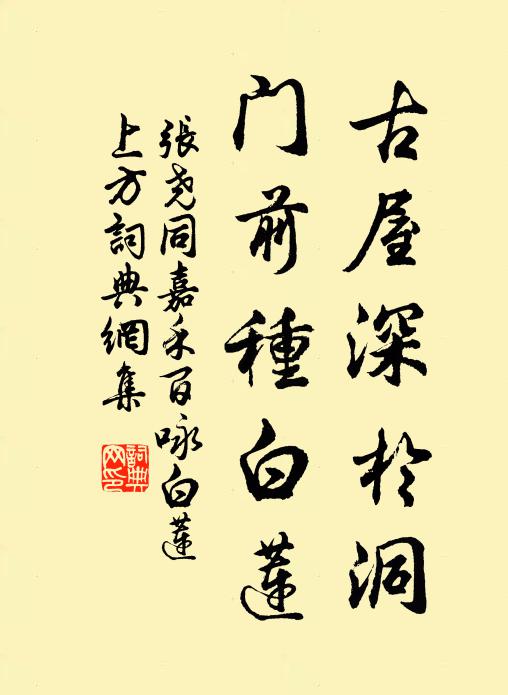 古屋深於洞
門前種白蓮
張堯同嘉禾百咏白蓮
上方詞典網集
詞典網印